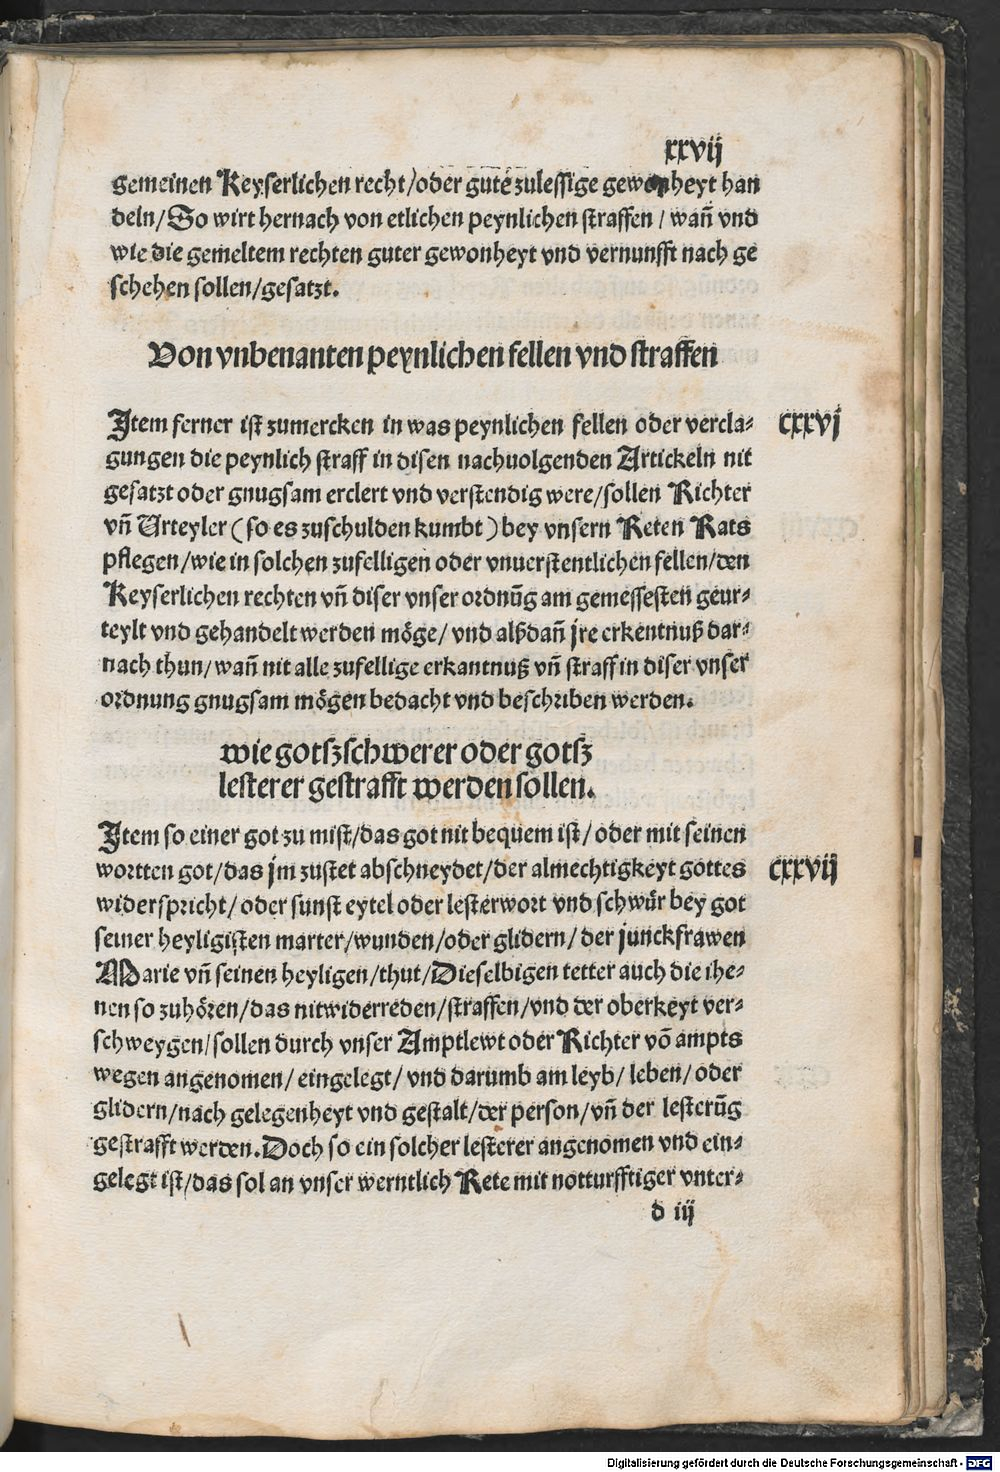 xxvij
gemeinen Keyserlichen recht/oder gute zulessige gewonheyt han
deln/So wirt hernach von etlichen peynlichen straffen/wañ vnd
wie die gemeltem rechten guter gewonheyt vnd vernunfft nach ge
schehen sollen/gesatzt.
Von vnbenanten peynlichen fellen vnd straffen
Item ferner ist zumercken in was peynlichen fellen oder vercla⸗ cxxvj
gungen die peynlich straff in disen nachuolgenden Artickeln nit
gesatzt oder gnugsam erclert vnd verstendig were/sollen Richter
vñ Urteyler (so es zuschulden kumbt) bey vnsern Reten Rats
pflegen/wie in solchen zufelligen oder vnuerstentlichen fellen/den
Keyserlichen rechten vñ diser vnser ordnũg am gemessesten geur⸗
teylt vnd gehandelt werden möge/vnd alßdañ jre erkentnuß dar⸗
nach thun/wañ nit alle zufellige erkantnuß vñ straff in diser vnser
ordnung gnugsam mögen bedacht vnd beschriben werden.
wie gotßschwerer oder gotß
lesterer gestrafft werden sollen.
Item so einer got zu mist/das got nit bequem ist/oder mit seinen
wortten got/das jm zustet abschneydet/der almechtigkeyt gottes cxxvij
widerspricht/oder sunst eytel oder lesterwort vnd schwür bey got
seiner heyligisten marter/wunden/oder glidern/der junckfrawen
Marie vñ seinen heyligen/thut/Dieselbigen tetter auch die ihe⸗
nen so zuhören/das nitwiderreden/straffen/vnd der oberkeyt ver⸗
schweygen/sollen durch vnser Amptlewt oder Richter võ ampts
wegen angenomen/eingelegt/vnd darumb am leyb/leben/oder
glidern/nach gelegenheyt vnd gestalt/der person/vñ der lesterũg
gestrafft werden.Doch so ein solcher lesterer angenomen vnd ein⸗
gelegt ist/das sol an vnser werntlich Rete mit notturfftiger vnter⸗
d iij
Digitalisierung gefördert durch die Deutsche Forschungsgemeinschaft - DFG